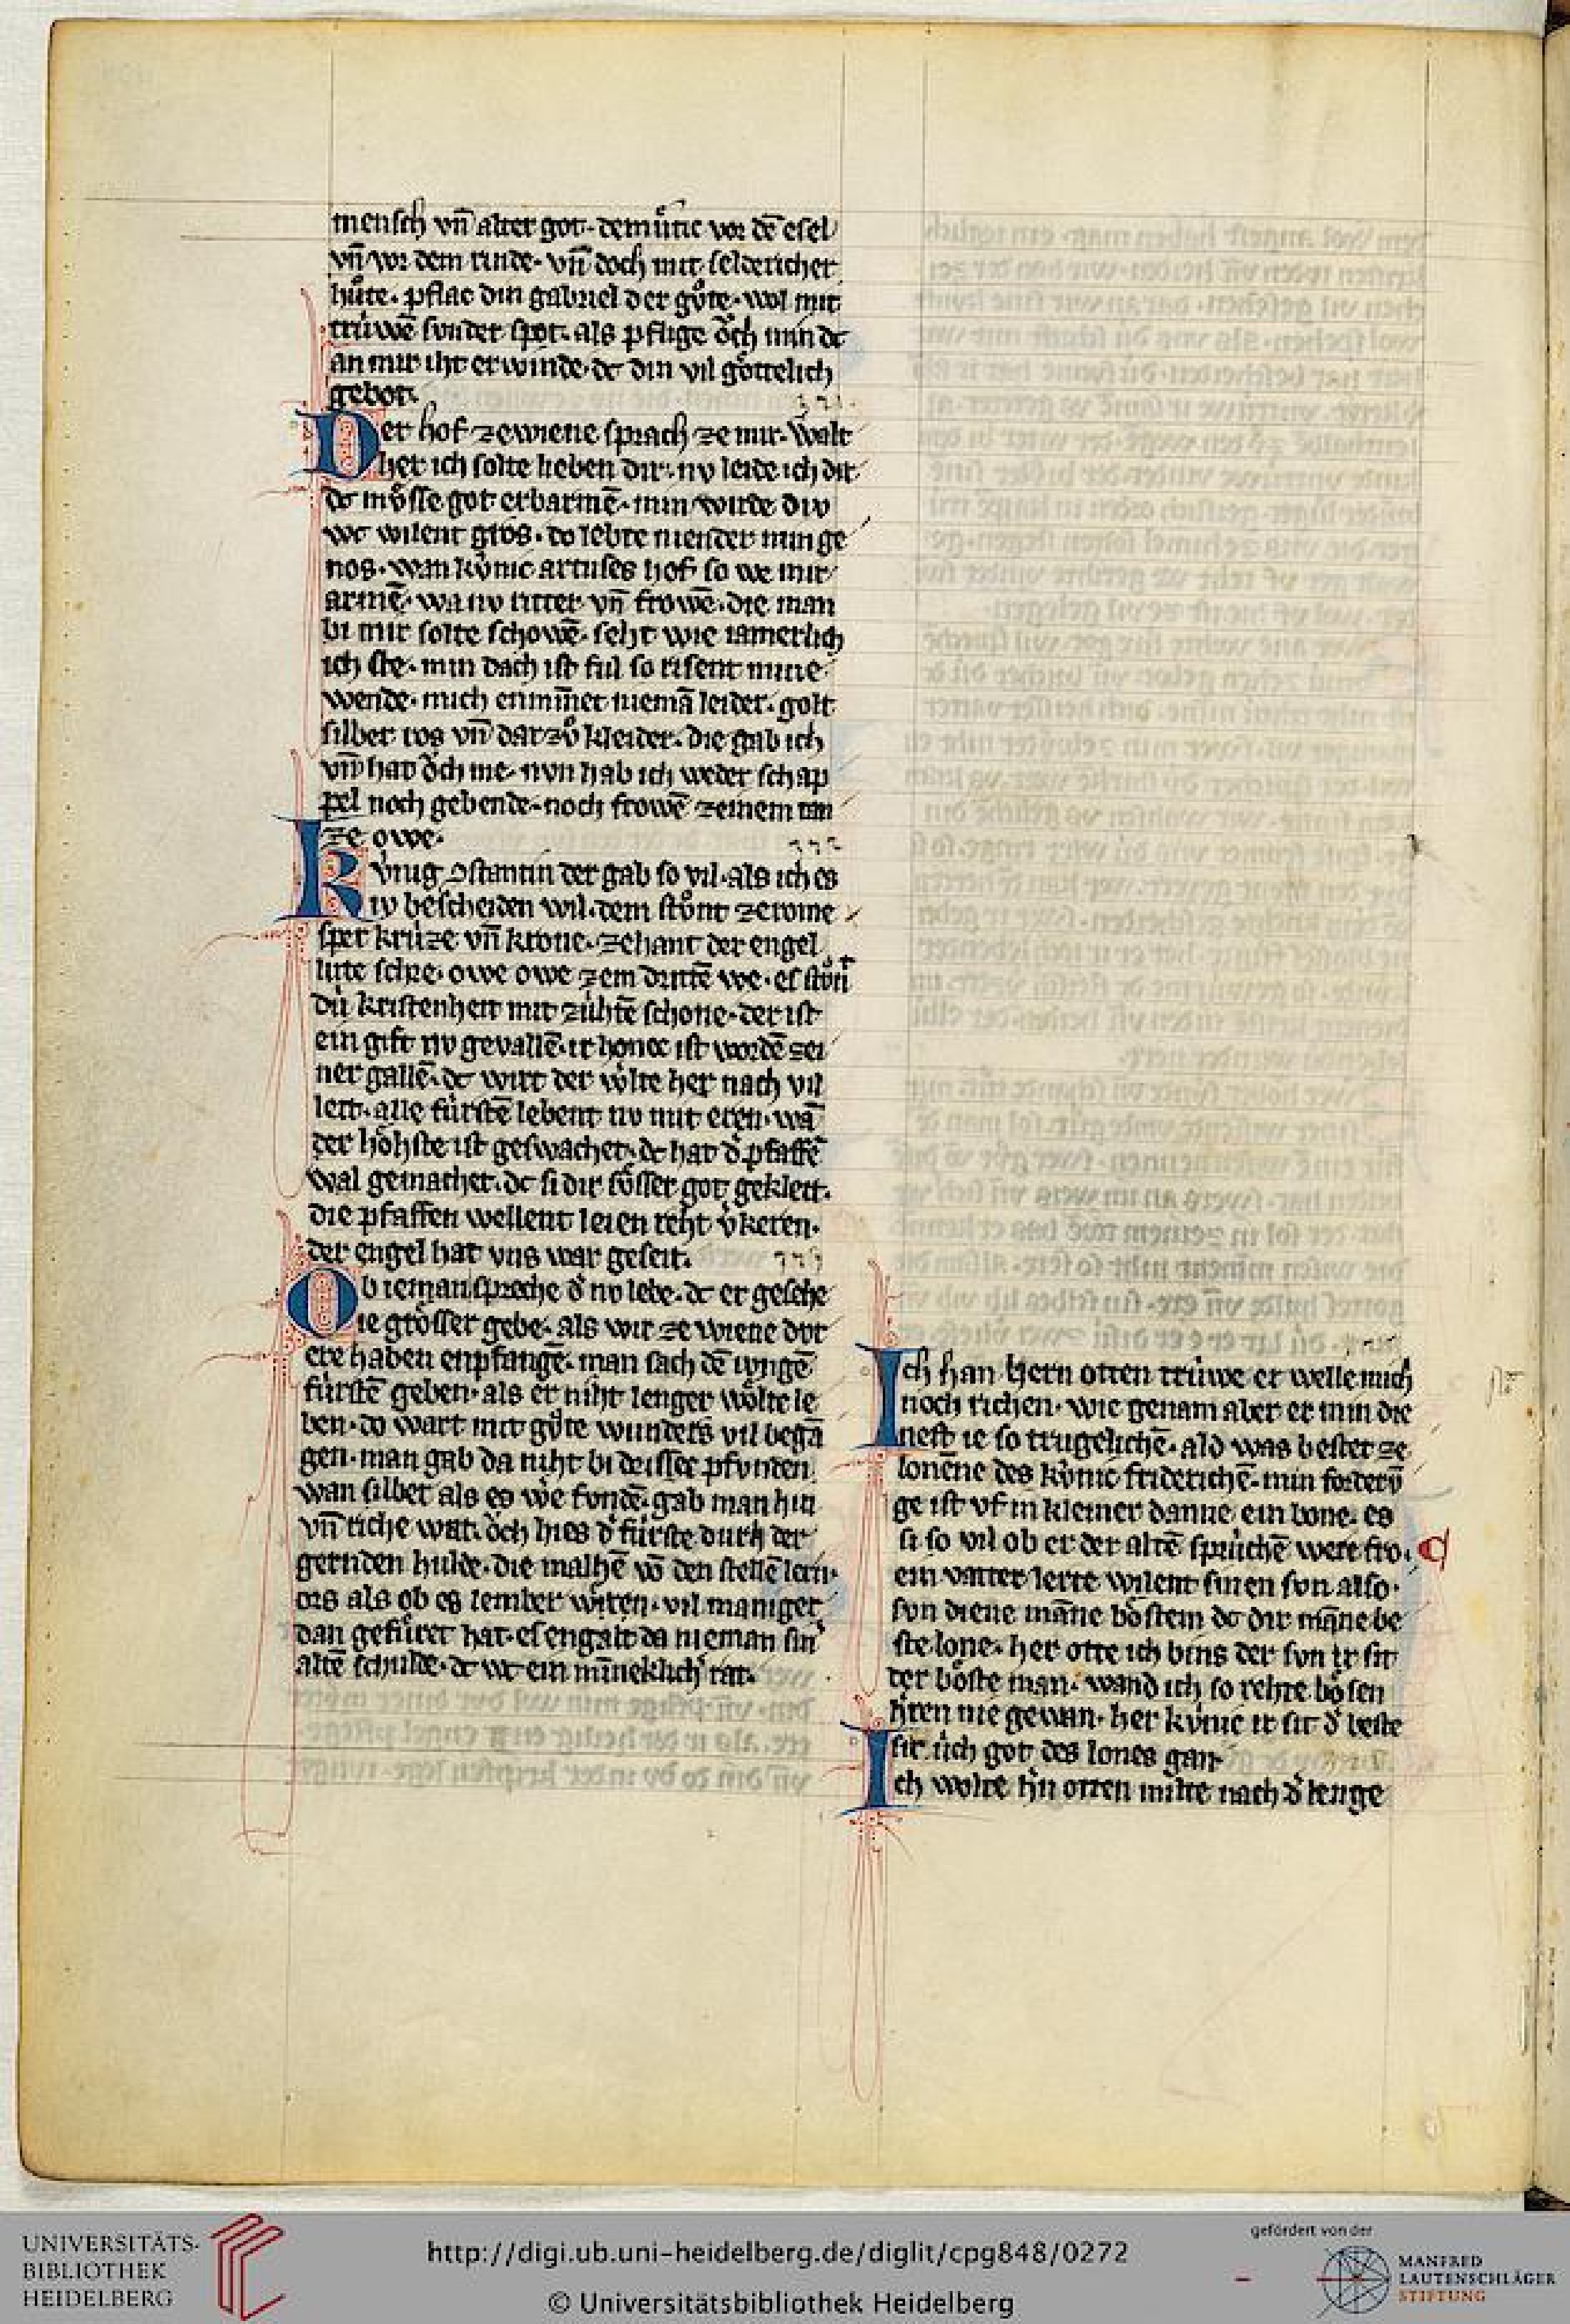 mensch vn̄ alter got. demuͤtic vor dē esel
vn̄ vor dem rinde. vn̄ doch mit seldericher
huͦte. pflac din gabriel der guͦte. wol mit
trúwē sunder spot. als pflige oͮch min dc
an mir iht erwinde. dc din vil goͤttelich
gebot.
Der hof ze wiene sprach ze mir. walt
her ich solte lieben dir. nv leide ich dir
dc muͤsse got erbarmē. min wirde div
wc wilent gros. do lebte niender min ge
nos. wan kúnic artuses hof so we mir
armē. wa nv ritter vn̄ frowē. die man
bi mir solte schowē. seht wie iamerlich
ich ste. min dach ist ful so risent mine
wende. mich enmīnet niemā leider. golt
silber ros vn̄ dar zuͦ kleider. die gab ich
vn̄ hat oͮch me. nvn hab ich weder schap
pel noch gebende. noch frowē zeinem tan
ze owe.
Kv́nig ↄstantin der gab so vil. als ich es
iv bescheiden wil. dem stuͦl ze rome
sper krúze vn̄ krone. zehant der engel
lute schre. owe owe zem drittē we. es stuͦnt
dú kristenheit mit zúhtē schone. der ist
ein gift nv gevallē. ir honec ist wordē zei
ner gallē. dc wirt der wͤlte her nach vil
leit. alle fúrstē lebent nv mit eren. wā
der hoͤhste ist geswachet. dc hat d̓ pfaffē
wal gemachet. dc si dir suͤsser got gekleit.
die pfaffen wellent leien reht v̓keren.
der engel hat vns war geseit.
Ob ieman spreche d̓ nv lebe. dc er gesehe
ie groͤsser gebe. als wir ze wiene dvr
ere haben enpfangē. man sach dē ivngē
fúrstē geben. als er niht lenger woͤlte le
ben. do wart mit guͦte wunders vil begā
gen. man gab da niht bi drissec pfvnden
wan silber als es wͤe fundē. gab man hin
vn̄ riche wat. oͮch hies d̓ fúrste durh der
gernden hulde. die malhē vō den stellē lern
ors als ob es lember wͤren. vil maniger
dan gefuͤret hat. es engalt da nieman sin̓
altē schulde. dc wc ein minneklich̓ rat.
Ich han hern otten trúwe er welle mich
noch richen. wie genam aber er min die
nest ie so trugelichē. ald was bestet ze
lonēne des kúnic friderichē. min fordervn
ge ist vf in kleiner danne ein bone. es
si so vil ob er der altē sprúchē were fro.
ein vatter lerte wilent sinen svn also.
svn diene māne boͤstem dc dir māne be
ste lone. her otte ich bins der svn ir sit
der boͤste man. wand ich so rehte boͤsen
h̓ren nie gewan. her kúnic ir sit d̓ beste
sit úch got des lones gan
Ich wolte h̓n otten milte nach d̓ lenge
UNIVERSITÄTS-
BIBLIOTHEK
HEIDELBERG
http://digi.ub.uni-heidelberg.de/diglit/cpg848/0272
© Universitätsbibliothek Heidelberg
gefördert von der
MANFRED
LAUTENSCHLÄGER
STIFTUNG